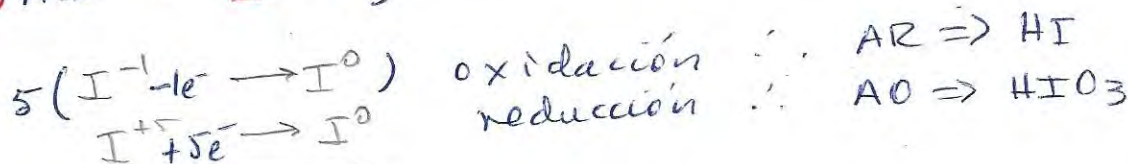 5(I⁻¹-1e⁻ → I⁰) oxidación ∴ AR => HI
I⁺⁵+5e⁻ → I⁰ reducción ∴ AO => HIO₃